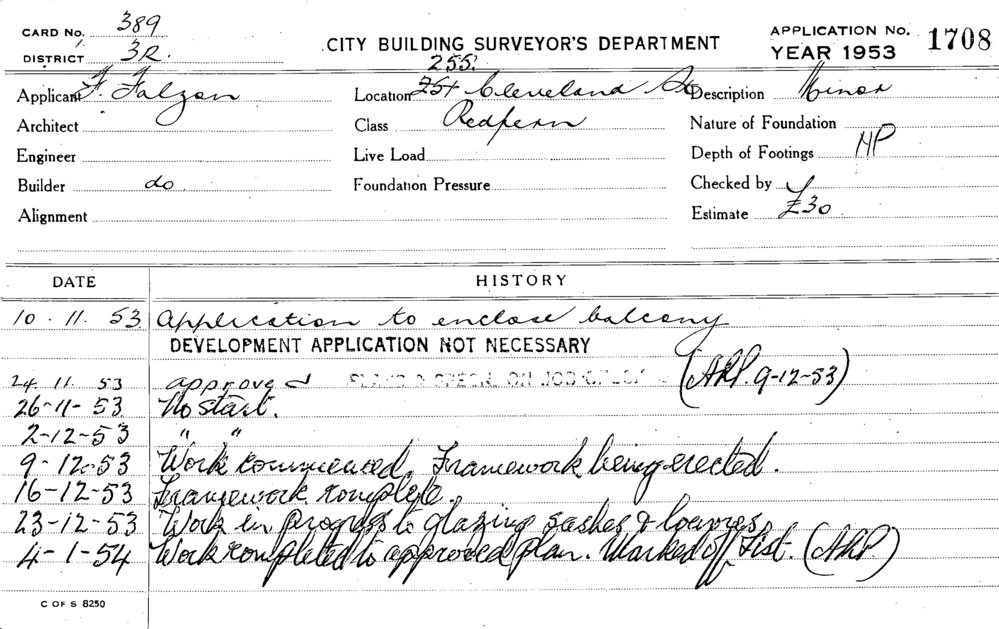 CARD No. 389
DISTRICT 3R.
CITY BUILDING SURVEYOR'S DEPARTMENT
APPLICATION No. 1708
YEAR 1953
255.
Applicant F. Falzon Location 251 Cleveland St Description Minor
Architect Class Redfern Nature of Foundation
Engineer Live Load Depth of Footings HP
Builder do Foundation Pressure Checked by
Alignment Estimate £30
DATE HISTORY
10.11.53 Application to enclose balcony
DEVELOPMENT APPLICATION NOT NECESSARY
24.11.53 approved PLANS & SPECN. ON JOB (AHP. 9-12-53)
26-11-53 No start.
2-12-53 " "
9-12-53 Work commenced. Framework being erected.
16-12-53 Framework complete.
23-12-53 Work in progress to glazing sashes & louvres
4-1-54 Work completed to approved plan. Marked off List. (AHP)
C OF S 8250